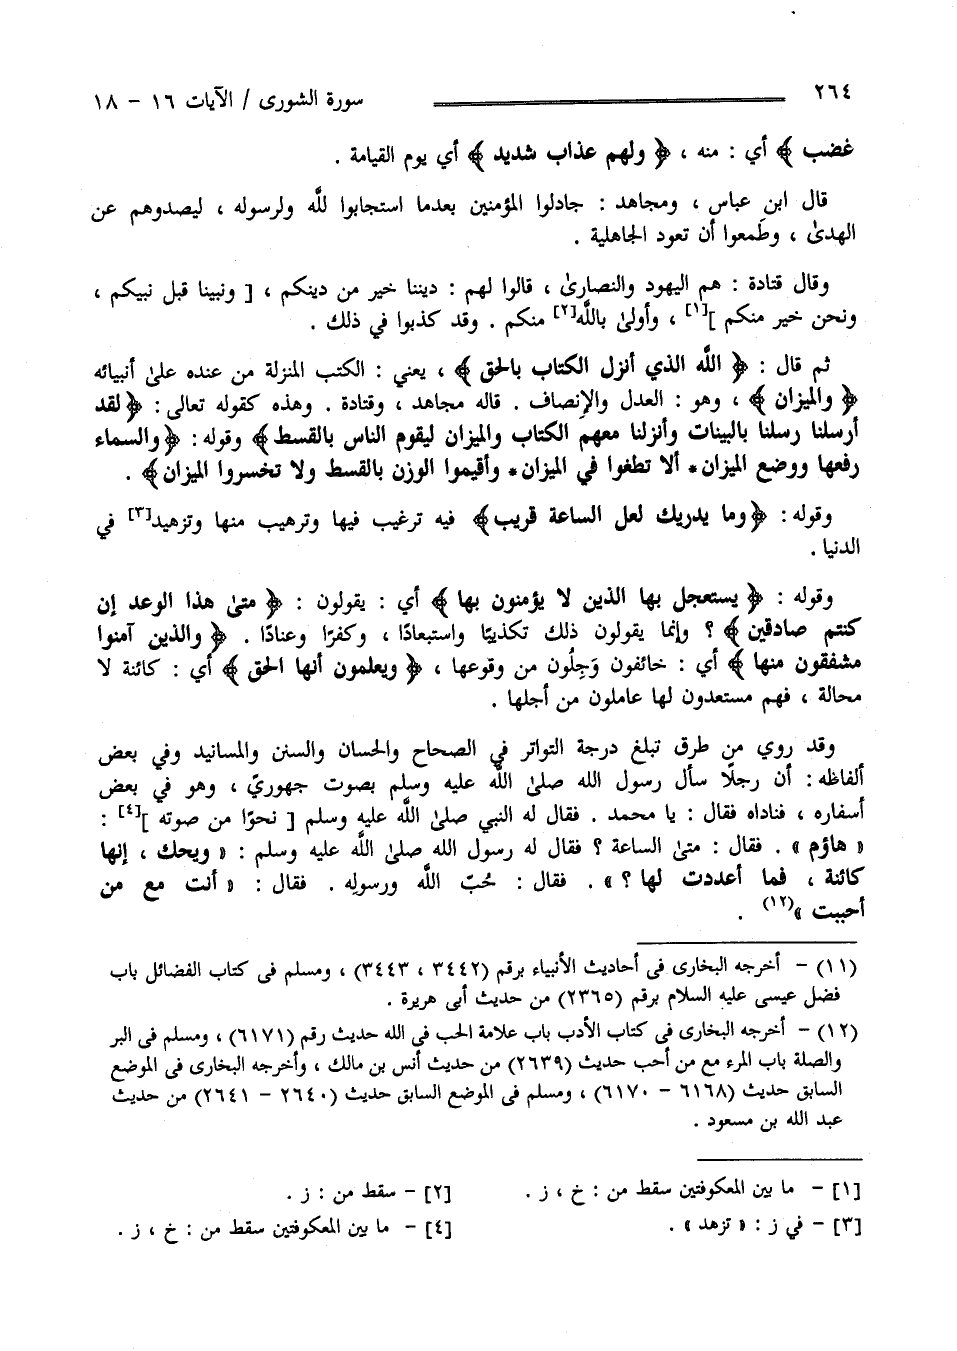 ٢٦٤ سورة الشورى / الآيات ١٦ - ١٨
غضب ﴾ أي : منه ، ﴿ ولهم عذاب شديد ﴾ أي يوم القيامة .
قال ابن عباس ، ومجاهد : جادلوا المؤمنين بعدما استجابوا للَّه ولرسوله ، ليصدوهم عن
الهدىٰ ، وطَمِعوا أن تعود الجاهلية .
وقال قتادة : هم اليهود والنصارىٰ ، قالوا لهم : ديننا خير من دينكم ، [ ونبينا قبل نبيكم ،
ونحن خير منكم ][١] ، وأولىٰ باللَّه[٢] منكم . وقد كذبوا في ذلك .
ثم قال : ﴿ اللَّه الذي أنزل الكتاب بالحق ﴾ ، يعني : الكتب المنزلة من عنده علىٰ أنبيائه
﴿ والميزان ﴾ ، وهو : العدل والإنصاف . قاله مجاهد ، وقتادة . وهذه كقوله تعالى : ﴿ لقد
أرسلنا رسلنا بالبينات وأنزلنا معهم الكتاب والميزان ليقوم الناس بالقسط﴾ وقوله : ﴿ والسماء
رفعها ووضع الميزان* ألا تطغوا في الميزان* وأقيموا الوزن بالقسط ولا تخسروا الميزان﴾ .
وقوله : ﴿ وما يدريك لعل الساعة قريب﴾ فيه ترغيب فيها وترهيب منها وتزهيد[٣] في
الدنيا .
وقوله : ﴿ يستعجل بها الذين لا يؤمنون بها ﴾ أي : يقولون : ﴿ متىٰ هذا الوعد إن
كنتم صادقين ﴾ ؟ وإنما يقولون ذلك تكذيبًا واستبعادًا ، وكفرًا وعنادًا . ﴿ والذين آمنوا
مشفقون منها ﴾ أي : خائفون وَجِلُون من وقوعها ، ﴿ ويعلمون أنها الحق ﴾ أي : كائنة لا
محالة ، فهم مستعدون لها عاملون من أجلها .
وقد روي من طرق تبلغ درجة التواتر في الصحاح والحسان والسنن والمسانيد وفي بعض
ألفاظه : أن رجلًا سأل رسول الله صلىٰ اللَّه عليه وسلم بصوت جهوريّ ، وهو في بعض
أسفاره ، فناداه فقال : يا محمد . فقال له النبي صلىٰ اللَّه عليه وسلم [ نحوًا من صوته ][٤] :
« هاؤم » . فقال : متىٰ الساعة ؟ فقال له رسول الله صلىٰ اللَّه عليه وسلم : « ويحك ، إنها
كائنة ، فما أعددت لها ؟ » . فقال : حُبّ اللَّه ورسولِه . فقال : « أنت مع من
أحببت »(١٢) .
(١١) - أخرجه البخارى فى أحاديث الأنبياء برقم (٣٤٤٢ ، ٣٤٤٣) ، ومسلم فى كتاب الفضائل باب
فضل عيسى عليه السلام برقم (٢٣٦٥) من حديث أبى هريرة .
(١٢) - أخرجه البخارى فى كتاب الأدب باب علامة الحب فى الله حديث رقم (٦١٧١) ، ومسلم فى البر
والصلة باب المرء مع من أحب حديث (٢٦٣٩) من حديث أنس بن مالك ، وأخرجه البخارى فى الموضع
السابق حديث (٦١٦٨ - ٦١٧٠) ، ومسلم فى الموضع السابق حديث (٢٦٤٠ - ٢٦٤١) من حديث
عبد الله بن مسعود .
[١] - ما بين المعكوفتين سقط من : خ ، ز . [٢] - سقط من : ز .
[٣] - في ز : « تزهد » . [٤] - ما بين المعكوفتين سقط من : خ ، ز .